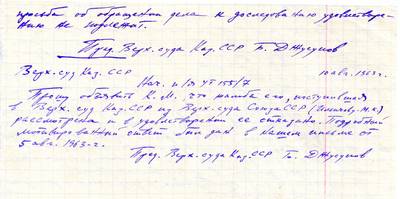 просьба об обращении дела к доследованию удовлетворе-
нию не подлежит.
Пред. Верх. суда Каз. ССР Б. Джусупов
Верх. суд Каз. ССР 10 авг. 1963 г.
Нач. п/я УГ 155/7
Прошу объявить К. М., что жалоба его, поступившая
в Верх. суд Каз. ССР из Верх. суда Союза ССР
рассмотрена и в удовлетворении ее отказано. Подробный
мотивированный ответ был дан в нашем письме от
5 авг. 1963 г.
Пред. Верх. суда Каз. ССР Б. Джусупов